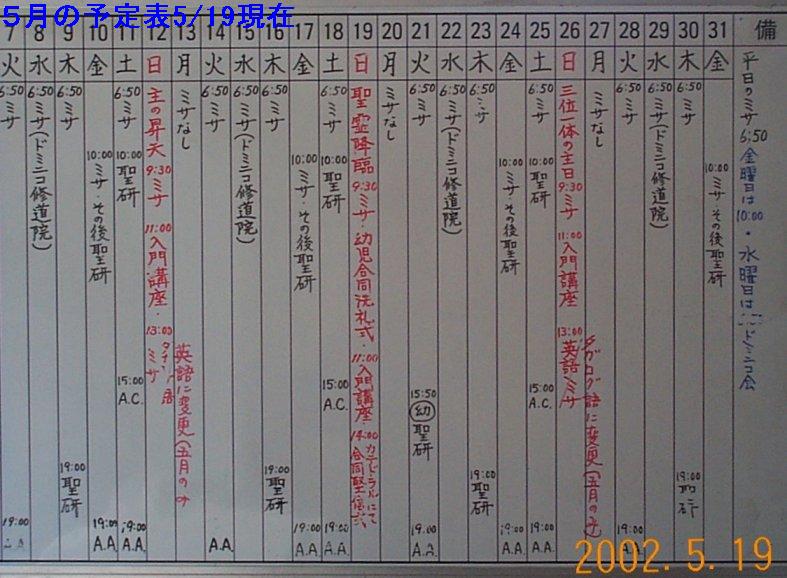 5月の予定表5/19現在
7 8 9 10 11 12 13 14 15 16 17 18 19 20 21 22 23 24 25 26 27 28 29 30 31 備
火 水 木 金 土 日 月 火 水 木 金 土 日 月 火 水 木 金 土 日 月 火 水 木 金
6:50 ミサ
19:00
6:50 ミサ(ドミニコ修道院)
6:50 ミサ
19:00 聖研
10:00 ミサ・その後聖研
19:00 A.A.
6:50 ミサ
10:00 聖研
15:00 A.C.
19:00 A.A.
主の昇天 9:30 ミサ 11:00 入門講座・13:00 ミサ
ミサなし
英語に変更(五月のみ
6:50 ミサ
A.A.
6:50 ミサ(ドミニコ修道院)
6:50 ミサ
19:00 聖研
10:00 ミサ・その後聖研
19:00 A.A.
6:50 ミサ
10:00 聖研
15:00 A.C.
19:00 A.A.
聖霊降臨 9:30 ミサ・幼児合同洗礼式・11:00 入門講座・14:00 カテドラルにて合同堅信式
ミサなし
6:50 ミサ
15:50 幼 聖研
19:00 A.A.
6:50 ミサ(ドミニコ修道院)
6:50 ミサ
19:00 聖研
10:00 ミサ・その後聖研
19:00 A.A.
6:50 ミサ
10:00 聖研
15:00 A.C.
19:00 A.A.
三位一体の主日 9:30 ミサ 11:00 入門講座 13:00 英語ミサ
ミサなし
タガログ語に変更(五月のみ)
6:50 ミサ
19:00 A.A.
6:50 ミサ(ドミニコ修道院)
6:50 ミサ
19:00 聖研
10:00 ミサ その後聖研
平日のミサ 6:50
金曜日は 10:00・水曜日は ドミニコ会
2002.5.19